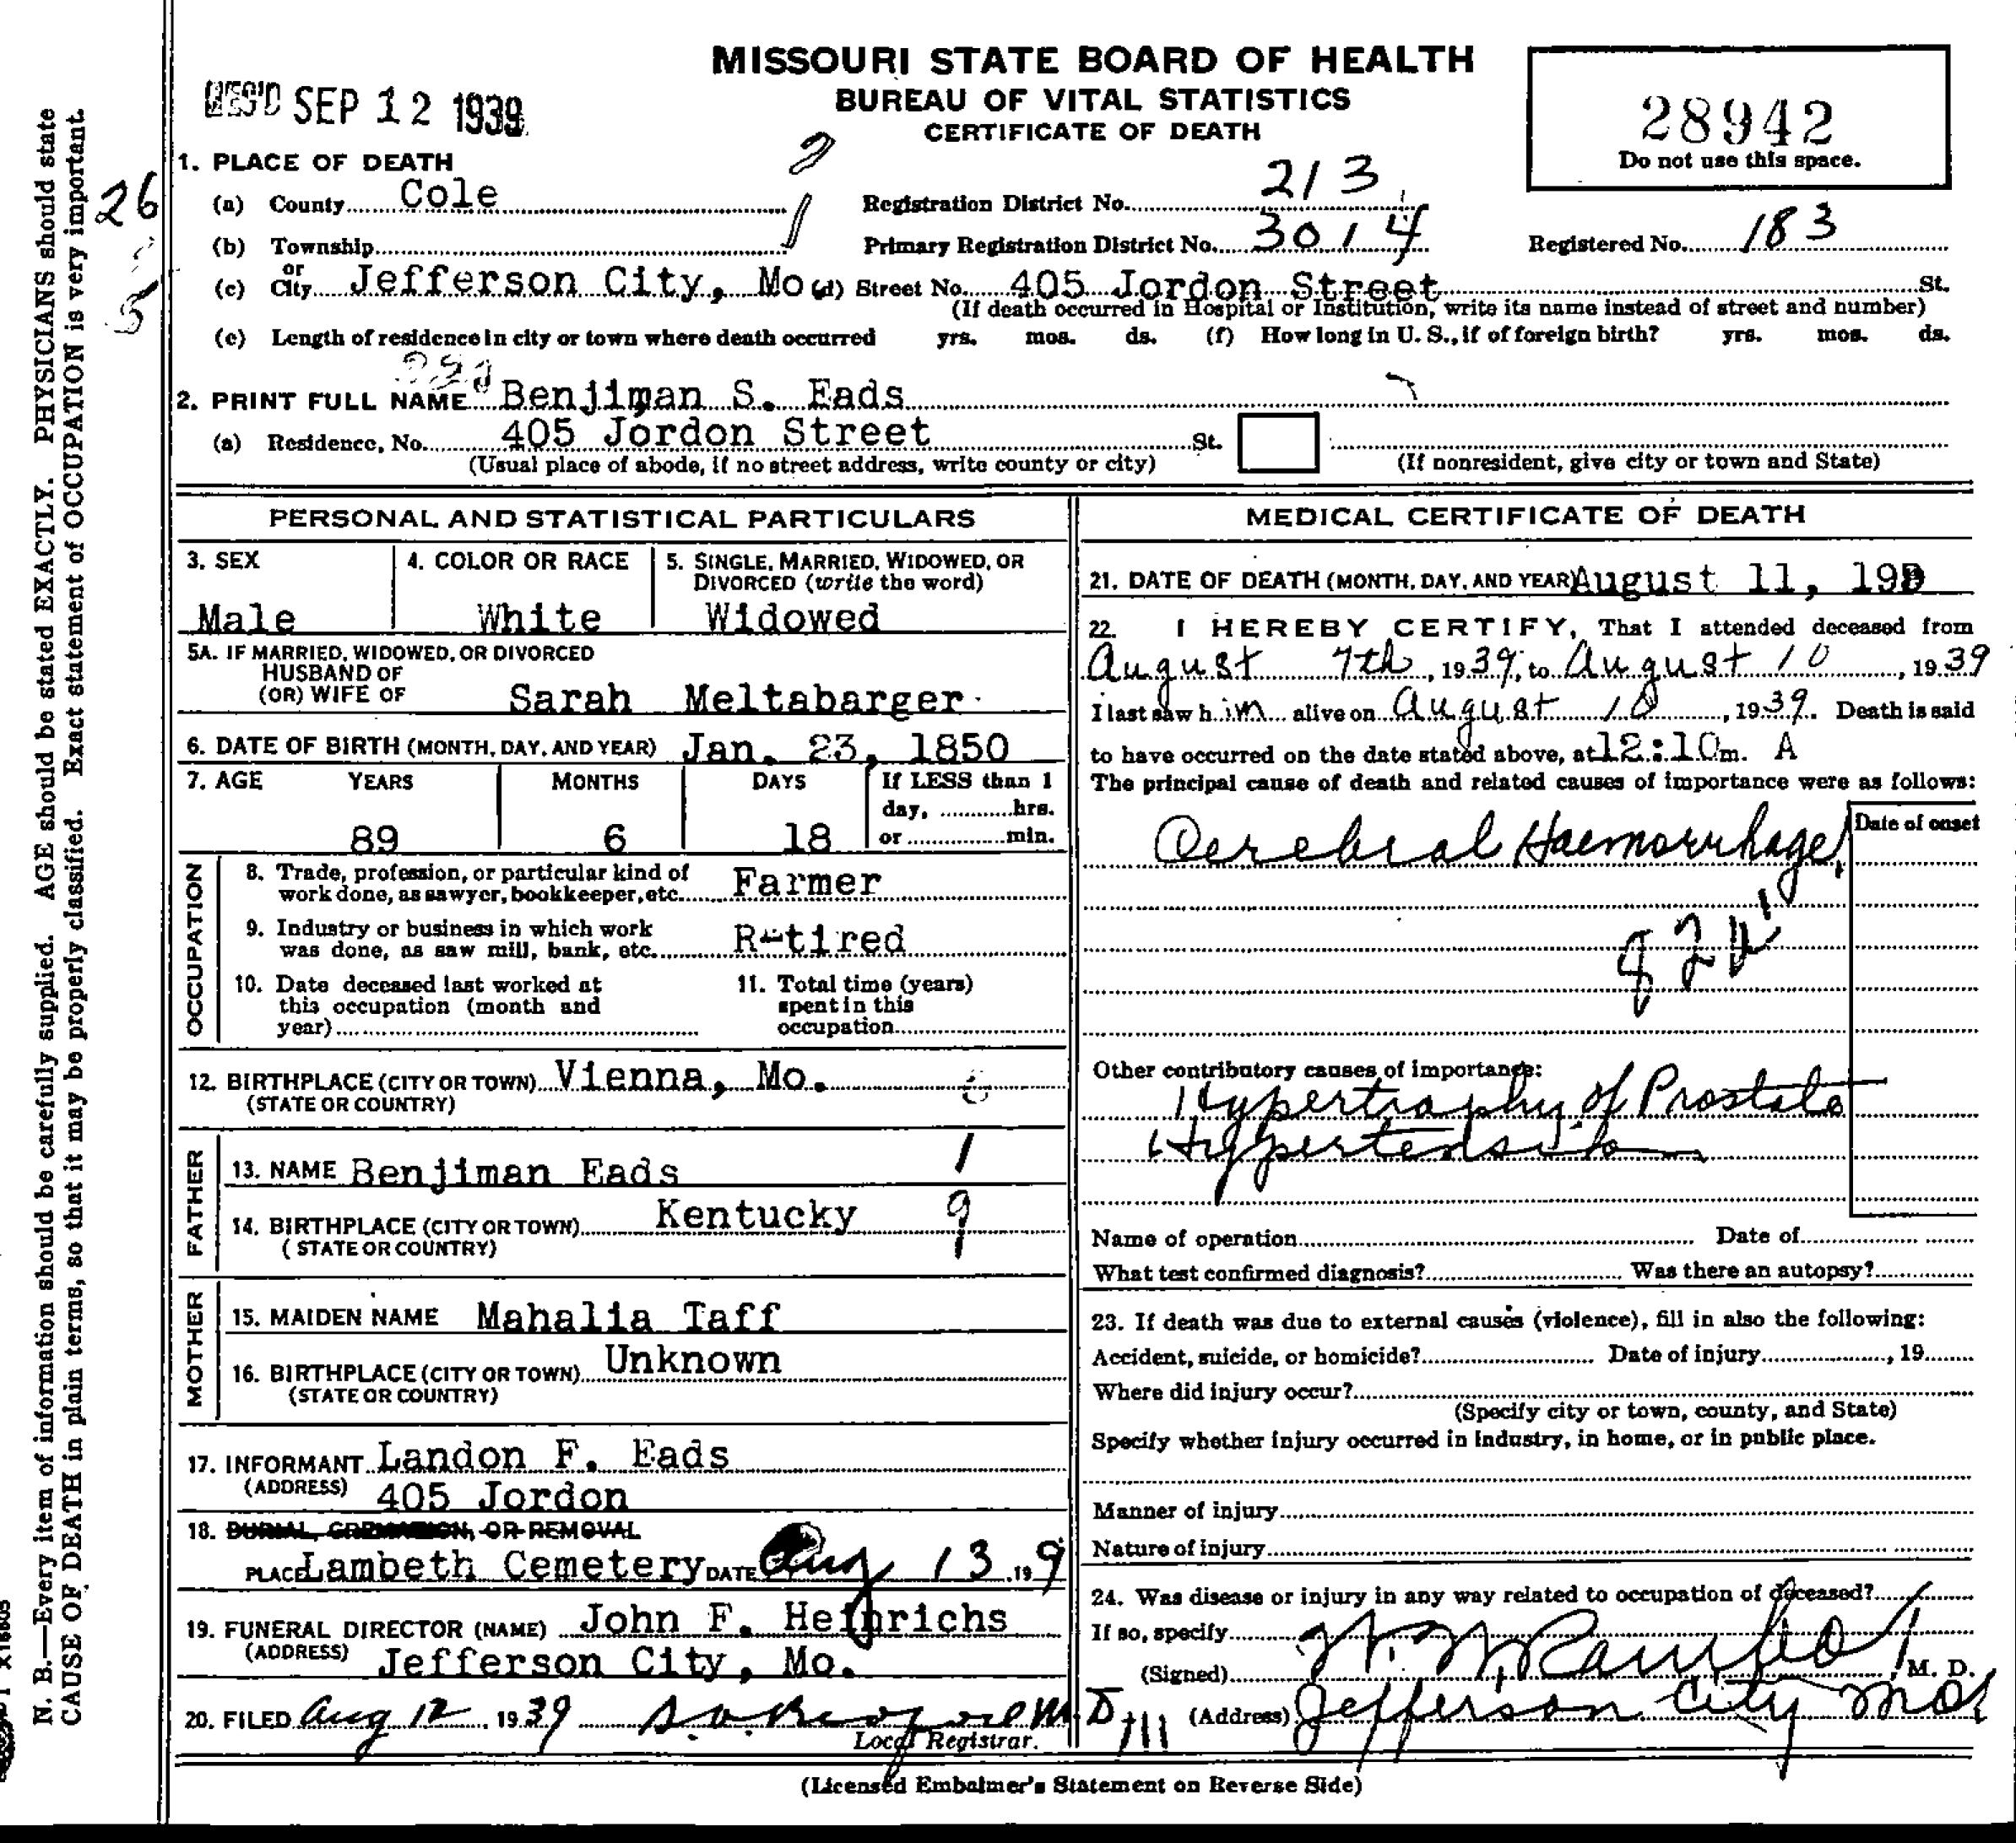 MISSOURI STATE BOARD OF HEALTH
BUREAU OF VITAL STATISTICS
CERTIFICATE OF DEATH
REC'D SEP 12 1939
28942
Do not use this space.
1. PLACE OF DEATH
(a) County Cole
Registration District No. 213
(b) Township
Primary Registration District No. 3014
Registered No. 183
(c) or City Jefferson City, Mo (d) Street No. 405 Jordon Street St.
(If death occurred in Hospital or Institution, write its name instead of street and number)
(e) Length of residence in city or town where death occurred yrs. mos. ds. (f) How long in U. S., if of foreign birth? yrs. mos. ds.
2. PRINT FULL NAME Benjiman S. Eads
(a) Residence, No. 405 Jordon Street St.
(Usual place of abode, if no street address, write county or city) (If nonresident, give city or town and State)
PERSONAL AND STATISTICAL PARTICULARS
3. SEX 4. COLOR OR RACE 5. SINGLE, MARRIED, WIDOWED, OR
DIVORCED (write the word)
Male White Widowed
5A. IF MARRIED, WIDOWED, OR DIVORCED
HUSBAND OF
(OR) WIFE OF Sarah Meltabarger
6. DATE OF BIRTH (MONTH, DAY, AND YEAR) Jan. 23, 1850
7. AGE YEARS MONTHS DAYS If LESS than 1
day, hrs.
89 6 18 or min.
OCCUPATION
8. Trade, profession, or particular kind of
work done, as sawyer, bookkeeper, etc. Farmer
9. Industry or business in which work
was done, as saw mill, bank, etc. R-tired
10. Date deceased last worked at
this occupation (month and
year)
11. Total time (years)
spent in this
occupation
12. BIRTHPLACE (CITY OR TOWN) Vienna, Mo.
(STATE OR COUNTRY)
FATHER
13. NAME Benjiman Eads 1
14. BIRTHPLACE (CITY OR TOWN) Kentucky 9
(STATE OR COUNTRY)
MOTHER
15. MAIDEN NAME Mahalia Taff
16. BIRTHPLACE (CITY OR TOWN) Unknown
(STATE OR COUNTRY)
17. INFORMANT Landon F. Eads
(ADDRESS) 405 Jordon
18. BURIAL, CREMATION, OR REMOVAL
PLACE Lambeth Cemetery DATE Aug 13 19 9
19. FUNERAL DIRECTOR (NAME) John F. Heinrichs
(ADDRESS) Jefferson City, Mo.
20. FILED Aug 12, 1939
Local Registrar.
MEDICAL CERTIFICATE OF DEATH
21. DATE OF DEATH (MONTH, DAY, AND YEAR) August 11, 19
22. I HEREBY CERTIFY, That I attended deceased from
August 7th, 1939, to August 10, 1939
I last saw him alive on August 10, 1939. Death is said
to have occurred on the date stated above, at 12:10 m. A
The principal cause of death and related causes of importance were as follows:
Date of onset
Cerebral Haemorrhage
Other contributory causes of importance:
Hypertrophy of Prostate
Hypertension
Name of operation Date of
What test confirmed diagnosis? Was there an autopsy?
23. If death was due to external causes (violence), fill in also the following:
Accident, suicide, or homicide? Date of injury , 19
Where did injury occur?
(Specify city or town, county, and State)
Specify whether injury occurred in industry, in home, or in public place.
Manner of injury
Nature of injury
24. Was disease or injury in any way related to occupation of deceased?
If so, specify
(Signed) , M. D.
(Address) Jefferson City Mo
(Licensed Embalmer's Statement on Reverse Side)
N. B.—Every item of information should be carefully supplied. AGE should be stated EXACTLY. PHYSICIANS should state
CAUSE OF DEATH in plain terms, so that it may be properly classified. Exact statement of OCCUPATION is very important.
26
5